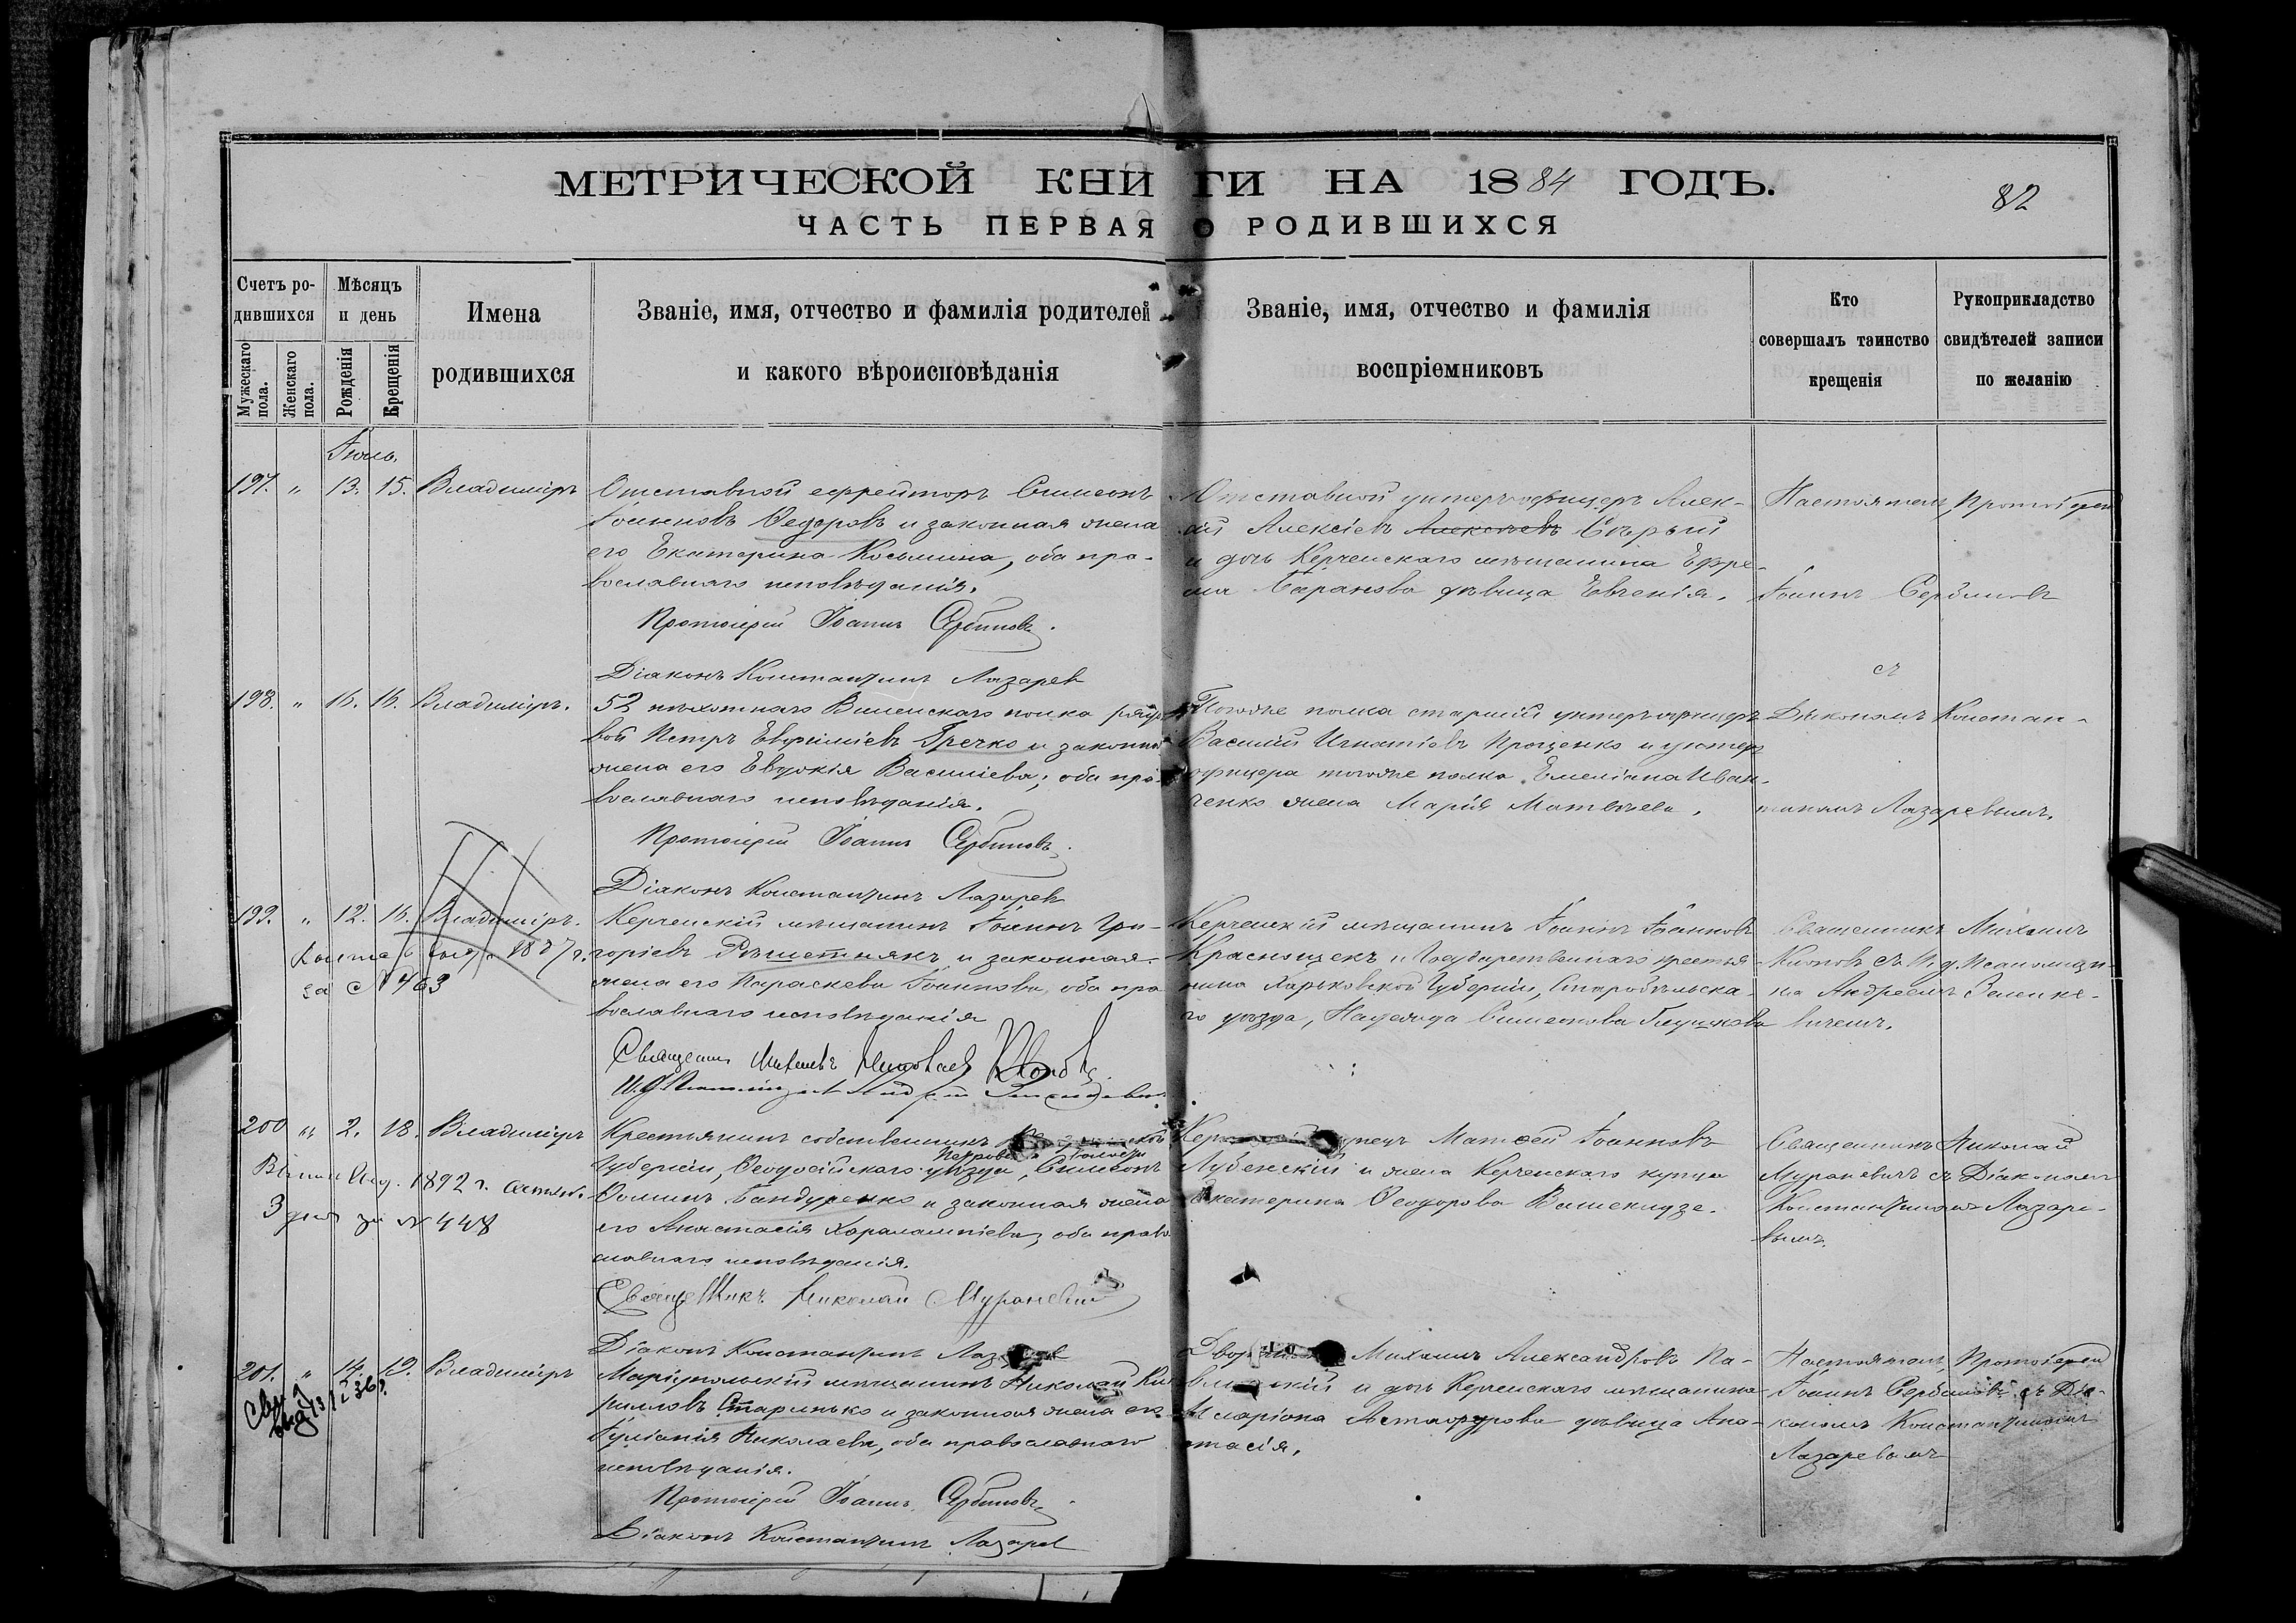 МЕТРИЧЕСКОЙ КНИГИ НА 1884 ГОДЪ.
82
ЧАСТЬ ПЕРВАЯ О РОДИВШИХСЯ
Счетъ родившихся
Мужескаго пола.
Женскаго пола.
Мѣсяцъ и день
Рожденія
Крещенія
Имена
родившихся
Званіе, имя, отчество и фамилія родителей
и какого вѣроисповѣданія
Званіе, имя, отчество и фамилія
воспріемниковъ
Кто
совершалъ таинство
крещенія
Рукоприкладство
свидѣтелей записи
по желанію
Іюль.
197. " 13. 15. Владиміръ
Отставной ефрейторъ Симеонъ
Іоанновъ Ѳедоровъ и законная жена
его Екатерина Косьмина, оба пра-
вославнаго исповѣданія.
Протоіерей Іоаннъ Сербиновъ.
Діаконъ Константинъ Лазарев
Отставной унтеръ-офицеръ Алек-
сій Алексіевъ Алексѣевъ Сѣрый
и дочь Керченскаго мѣщанина Ефре-
ма Баранова дѣвица Евгенія.
Настоятель, Протоіерей
Іоаннъ Сербиновъ
съ
198. " 16. 16. Владиміръ.
52 пѣхотнаго Виленскаго полка рядо-
вой Петръ Евфиміевъ Гречко и законная
жена его Евдокія Василіева; оба пра-
вославнаго исповѣданія.
Протоіерей Іоаннъ Сербиновъ.
Діаконъ Константинъ Лазарев
Тогоже полка старшій унтеръ-офицеръ
Василій Игнатіевъ Проценко и унтеръ
офицера тогоже полка Емеліана Иван-
ченко жена Марія Матвѣева.
Діакономъ Констан-
тиномъ Лазаревымъ.
199. " 12. 16. Владиміръ.
за № 463
Керченскій мѣщанинъ Іоаннъ Гри-
горіевъ Рѣшетнякъ и законная
жена его Параскева Іоаннова, оба пра
вославнаго исповѣданія
Священникъ Михаилъ
Керченскій мѣщанинъ Іоаннъ Іоанновъ
Краснощекъ и Государственнаго крестья
нина Харьковской Губерніи, Старобѣльска-
го уѣзда, Надежда Симеонова Глушкова
Священникъ Михаилъ
Клоповъ съ И. д. Псаломщи-
ка Андреемъ Зеленке-
вичемъ.
200 " 2. 18. Владиміръ
1892 г.
3 дня за № 448
Крестьянинъ собственникъ
Губерніи, Ѳеодосійскаго уѣзда, Симеонъ
Ѳоминъ Бандуренко и законная жена
его Анастасія Харалампіева, оба право
славнаго исповѣданія.
Священникъ Николай Мураневич
Діаконъ Константинъ Лазарев
купецъ Матѳей Іоанновъ
Лубенскій и жена Керченскаго купца
Екатерина Ѳеодорова
Священникъ Николай
Мураневичъ съ Діакономъ
Константиномъ Лазаре-
вымъ.
201. " 14. 19. Владиміръ
Маріупольскій мѣщанинъ Николай Ки
рилловъ Старинько и законная жена его
Іуліанія Николаева, оба православнаго
исповѣданія.
Протоіерей Іоаннъ Сербиновъ
Діаконъ Константинъ Лазарев
Михаилъ Александровъ Па-
и дочь Керченскаго мѣщанина
Иларіона Астафурова дѣвица Ана-
стасія.
Настоятель, Протоіерей
Іоаннъ Сербиновъ съ Діа-
кономъ Константиномъ
Лазаревымъ